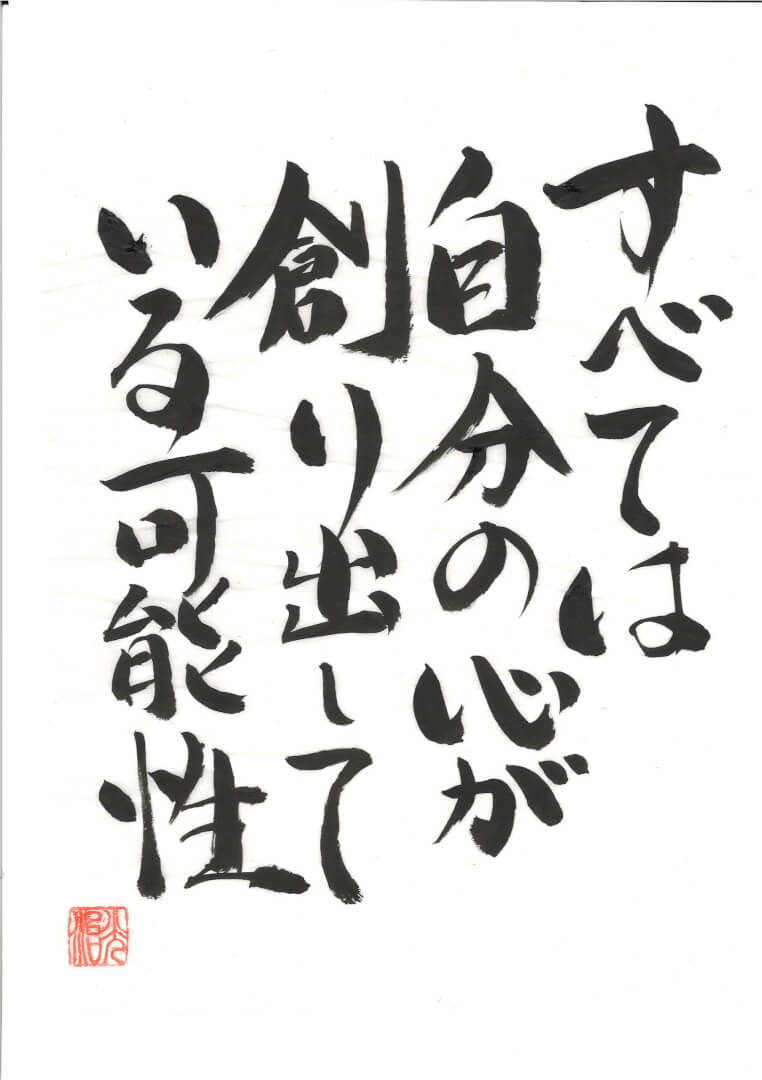 すべては
自分の心が
創り出して
いる可能性